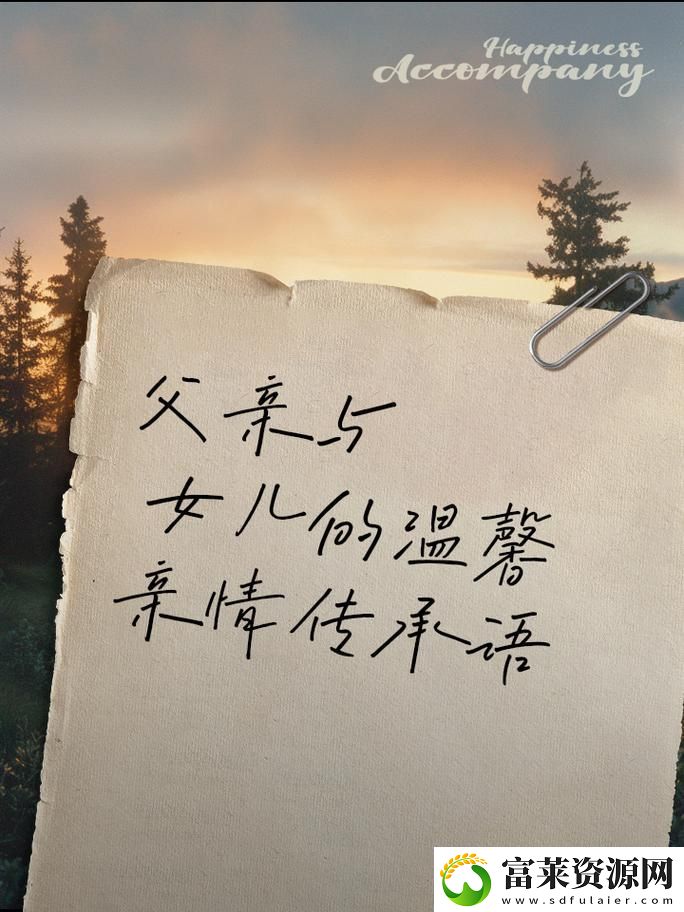 Happiness
Accompany
父亲与
女儿的温馨
亲情传承语
富莱资源网
www.sdfulaier.com